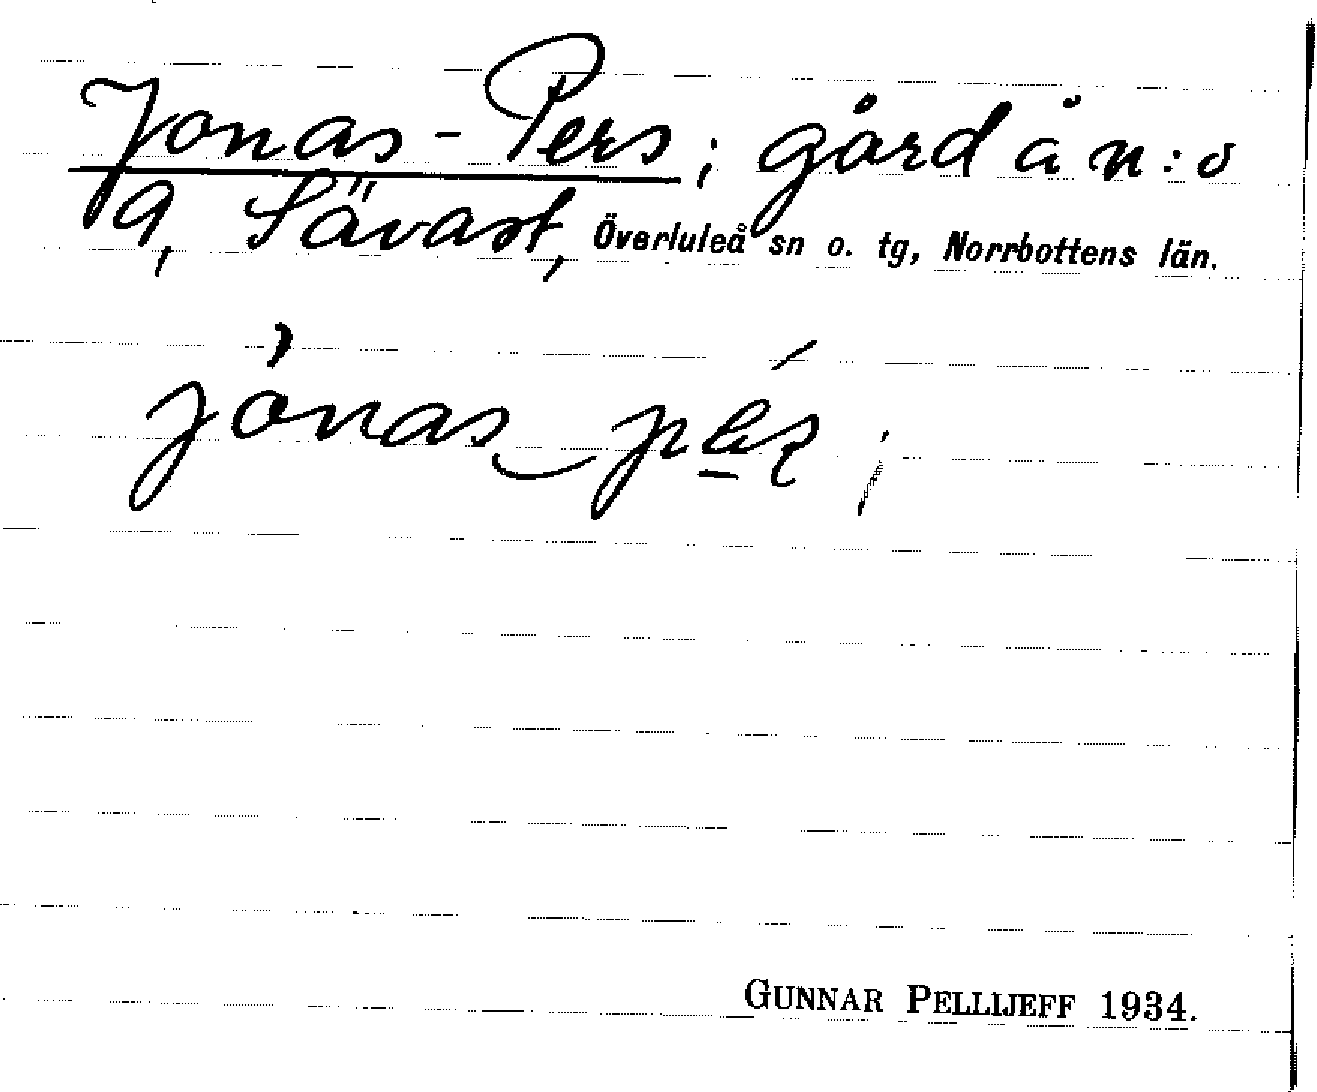 Jonas-Pers; gård å n:o
9, Sävast, Överluleå sn o. tg, Norrbottens län.
jònas
GUNNAR PELLIJEFF 1934.